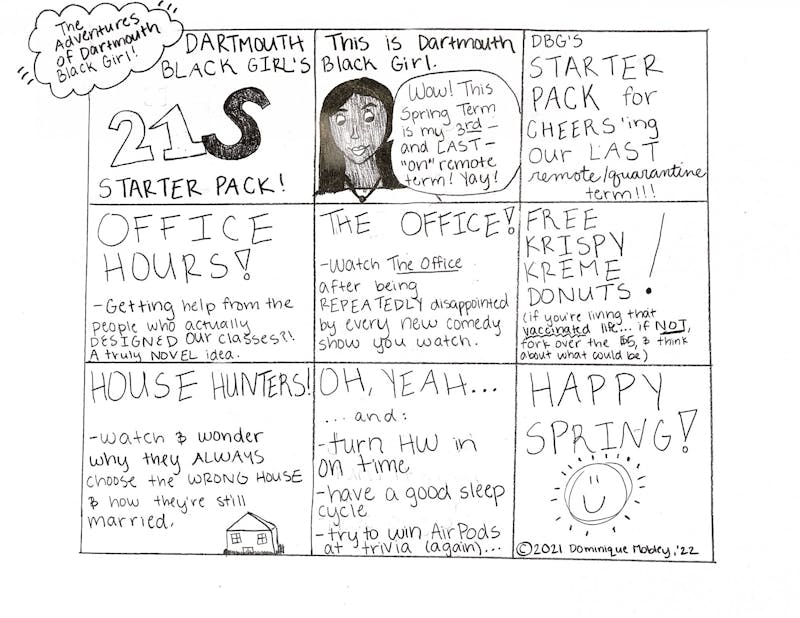 The
Adventures
of Dartmouth
Black Girl!
DARTMOUTH
BLACK GIRL'S
21S
STARTER PACK!
This is Dartmouth
Black Girl.
Wow! This
Spring Term
is my 3rd-
and LAST-
"on" remote
term! Yay!
DBG'S
STARTER
PACK for
CHEERS'ing
our LAST
remote/quarantine
term!!!
OFFICE
HOURS!
-Getting help from the
people who actually
DESIGNED our classes?!
A truly NOVEL idea.
THE OFFICE!
-Watch The Office
after being
REPEATEDLY disappointed
by every new comedy
show you watch.
FREE
KRISPY
KREME
DONUTS!
(if you're living that
vaccinated life... if NOT,
fork over the $5, & think
about what could be)
HOUSE HUNTERS!
-watch & wonder
why they ALWAYS
choose the WRONG HOUSE
& how they're still
married.
OH, YEAH...
...and:
-turn HW in
on time
-have a good sleep
cycle
-try to win AirPods
at trivia (again)...
HAPPY
SPRING!
©2021 Dominique Mobley,'22